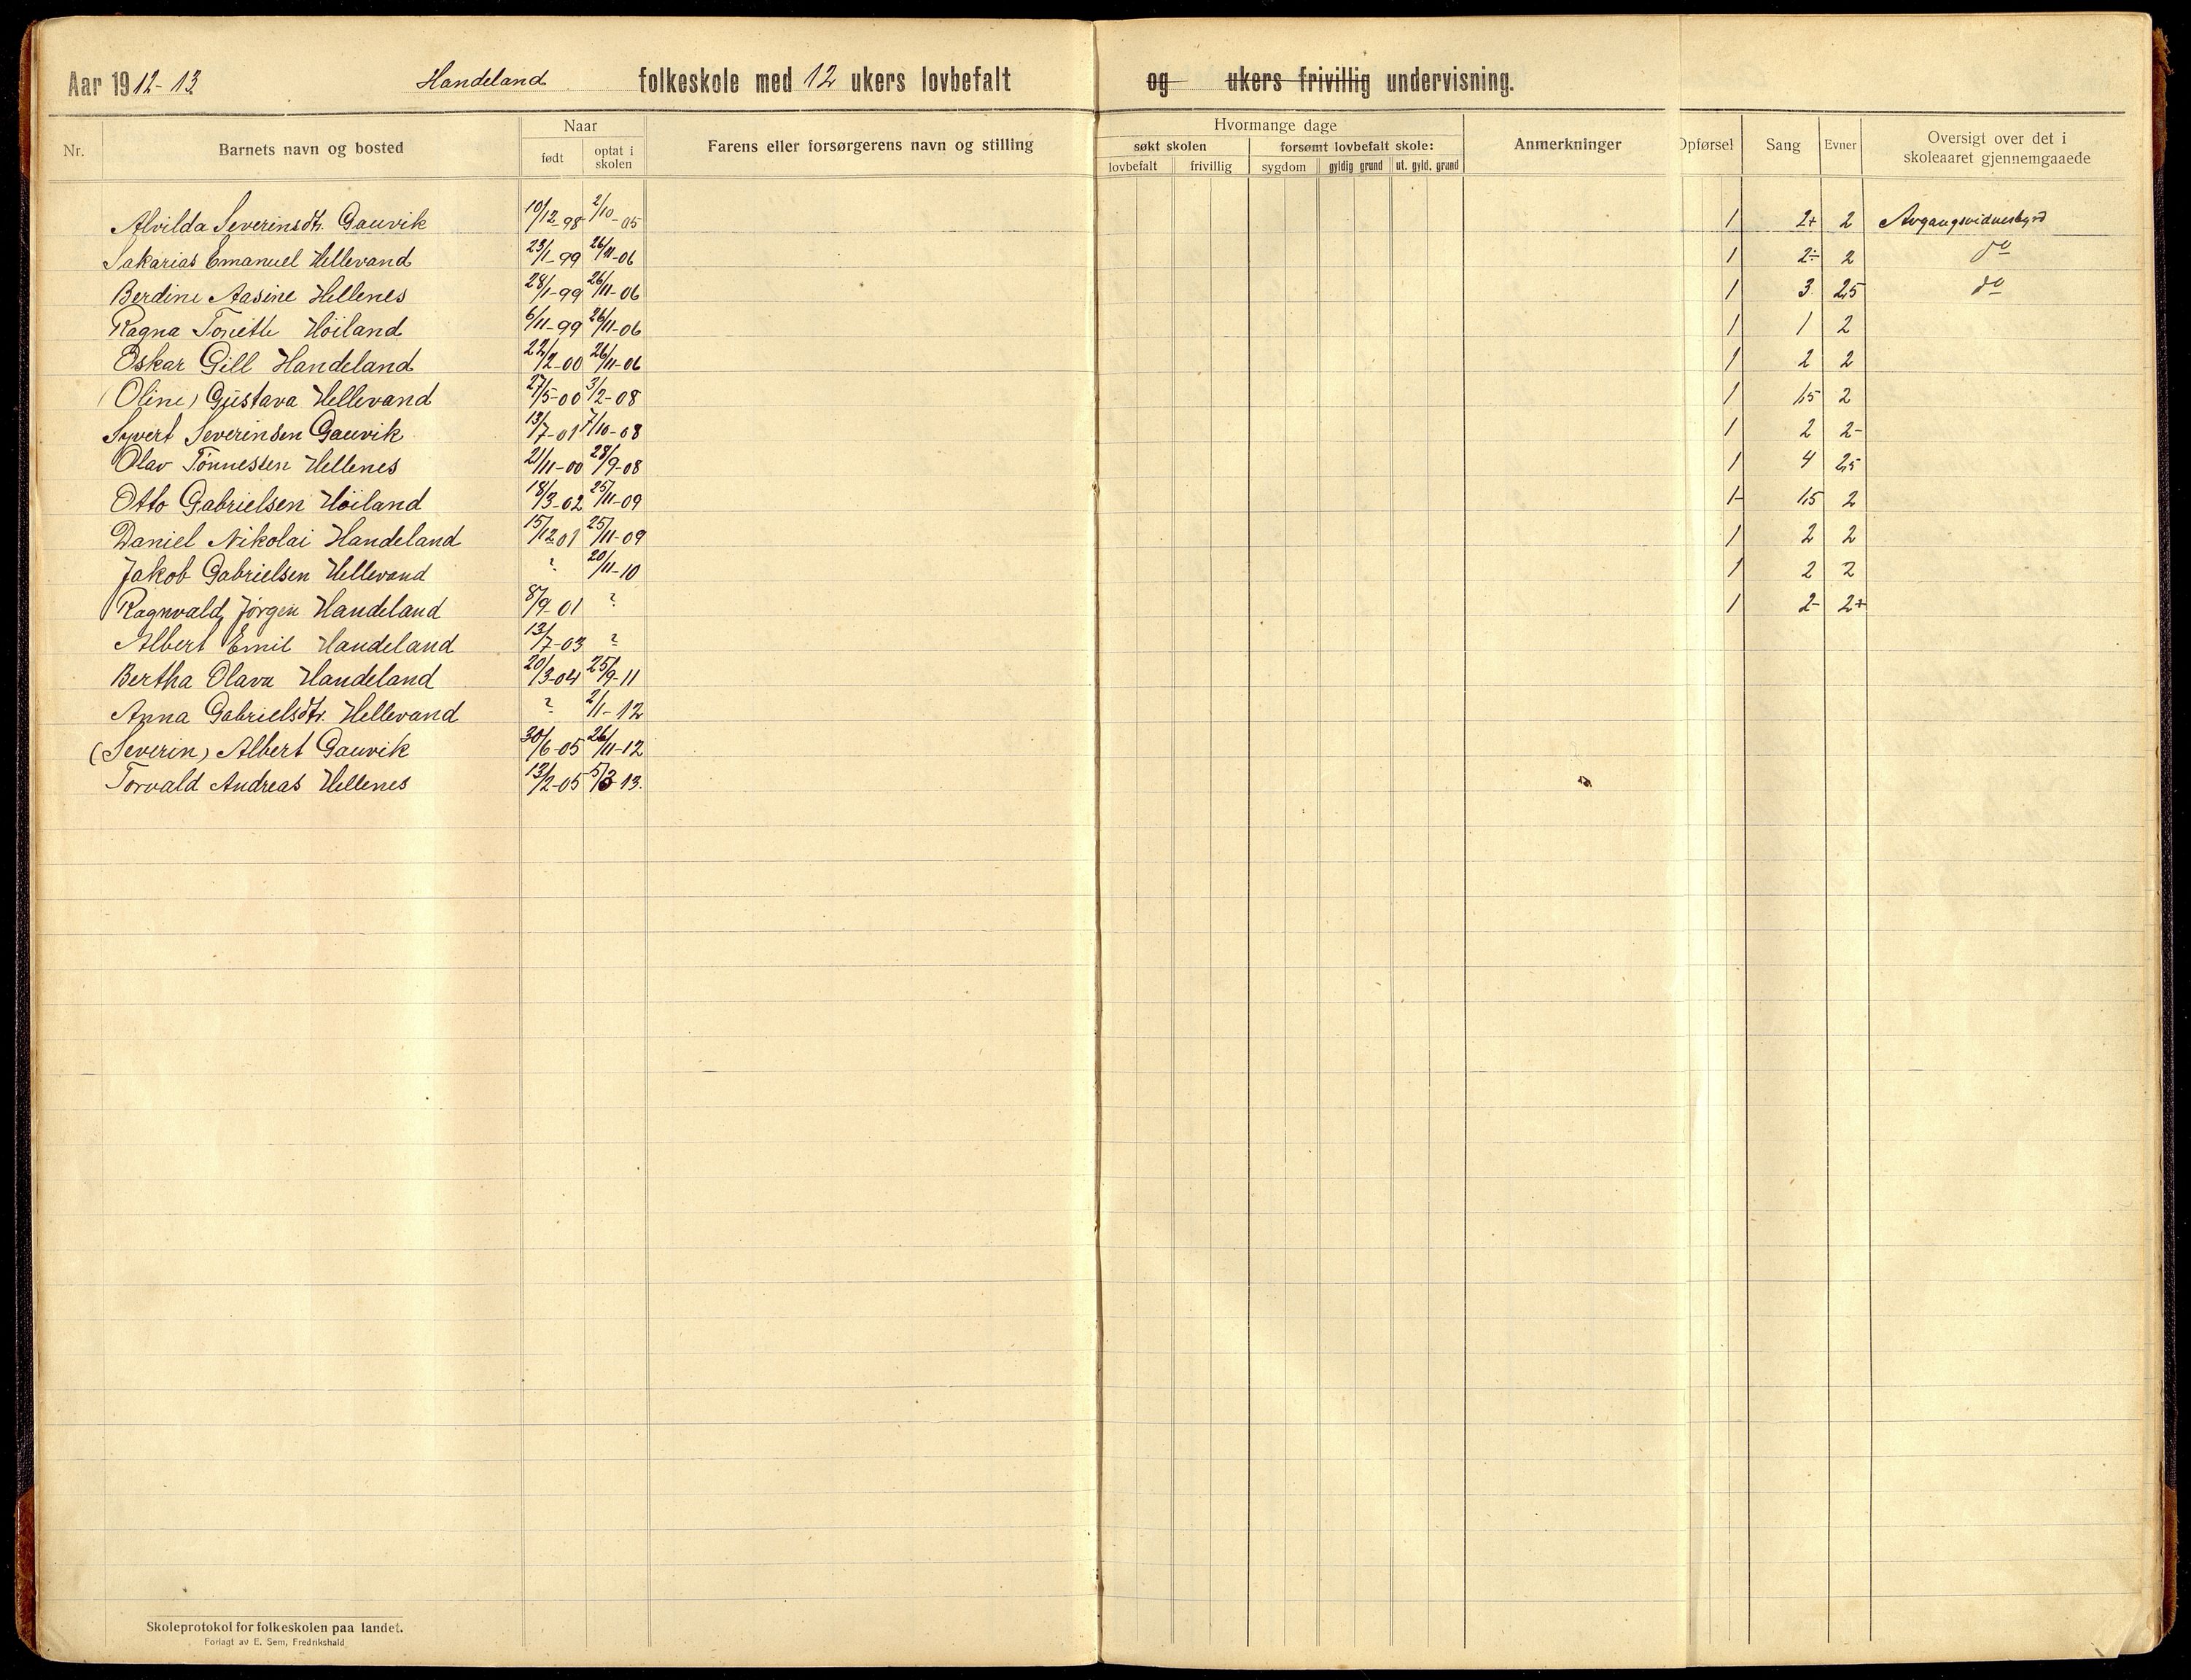 Aar 1912-13 Handeland folkeskole med 12 ukers lovbefalt og ukers frivillig undervisning.
Nr. Barnets navn og bosted Naar født optat i skolen Farens eller forsørgerens navn og stilling Hvormange dage søkt skolen lovbefalt frivillig forsømt lovbefalt skole: sygdom gyldig grund ut. gyld. grund Anmerkninger Opførsel Sang Evner Oversigt over det i skoleaaret gjennemgaaede
Alvilda Severinsdtr. Gauvik 10/12-98 2/10-05 1 2+ 2 Avgangsvidnesbyrd
Sakarias Emanuel Hellevand 23/1-99 26/11-06 1 2÷ 2 do
Berdine Aasine Hellenes 28/1-99 26/11-06 1 3 2,5 do
Ragna Tonette Höiland 6/11-99 26/11-06 1 1 2
Oskar Gill Handeland 22/2-00 26/11-06 1 2 2
(Oline) Gustava Hellevand 27/5-00 3/2-08 1 1,5 2
Syvert Severinsen Gauvik 13/7-01 7/10-08 1 2 2-
Olav Tönnessen Hellenes 21/11-00 28/9-08 1 4 2,5
Otto Gabrielsen Höiland 18/3-02 25/11-09 1- 1,5 2
Daniel Nikolai Handeland 15/12 01 25/11-09 1 2 2
Jakob Gabrielsen Hellevand ? 20/11-10 1 2 2
Ragnvald Jörgen Handeland 8/9-01 ? 1 2- 2+
Albert Emil Handeland 13/7-03 ?
Bertha Olava Handeland 20/3-04 25/9-11
Anna Gabrielsdtr. Hellevand ? 2/1-12
(Severin) Albert Gauvik 30/6-05 26/11-12
Torvald Andreas Hellenes 13/2-05 5/3-13.
Skoleprotokol for folkeskolen paa landet.
Forlagt av E. Sem, Fredrikshald